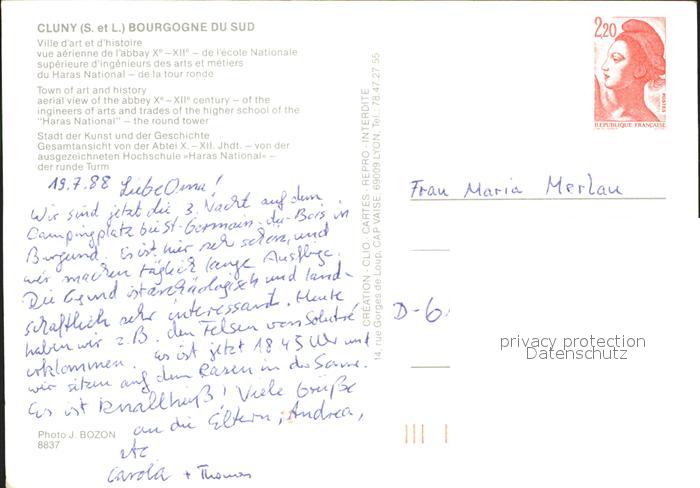 CLUNY (S. et L.) BOURGOGNE DU SUD
Ville d'art et d'histoire
vue aérienne de l'abbay Xe – XIIe – de l'école Nationale
supérieure d'ingénieurs des arts et métiers
du Haras National – de la tour ronde
Town of art and history
aerial view of the abbey Xe – XIIe century – of the
ingineers of arts and trades of the higher school of the
"Haras National" – the round tower
Stadt der Kunst und der Geschichte
Gesamtansicht von der Abtei X. – XII. Jhdt. – von der
ausgezeichneten Hochschule »Haras National« –
der runde Turm
19.7.88 Liebe Oma!
Wir sind jetzt die 3. Nacht auf dem
Campingplatz bei St-Germain-du-Bois in
Burgund. Es ist hier sehr schön, und
wir machen täglich lange Ausflüge.
Die Gegend ist archäologisch und land-
schaftlich sehr interessant. Heute
haben wir z.B. den Felsen von Solutré
erklommen. Es ist jetzt 18 45 Uhr und
wir sitzen auf dem Rasen in der Sonne.
Es ist knallheiß! Viele Grüße
an die Eltern, Andrea,
etc
Carola + Thomas
Photo J. BOZON
8837
CRÉATION - CLIO. CARTES - REPRO - INTERDITE
14, rue Gorges de Loup, CAP VAISE, 69009 LYON, Tel.: 78.47.27.55
2,20
POSTES
REPUBLIQUE FRANÇAISE
Frau Maria Merlau
D-6
privacy protection
Datenschutz